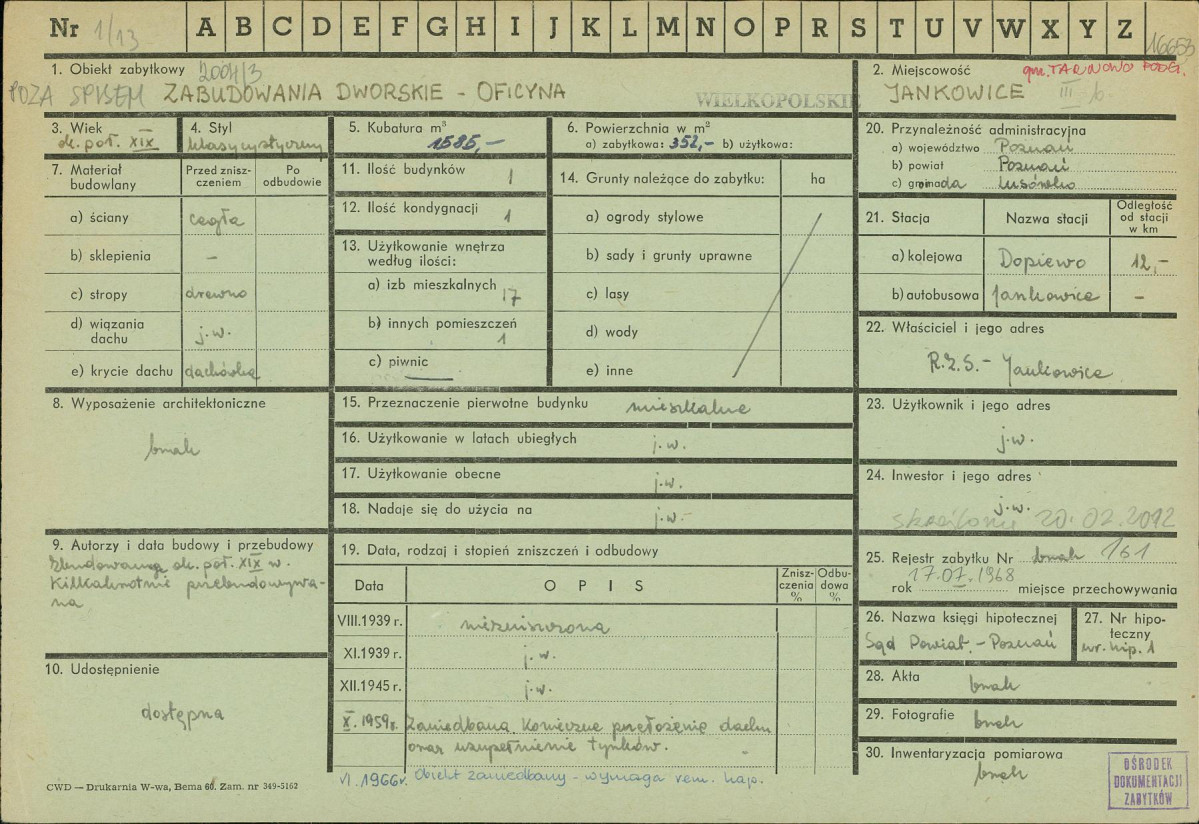 Nr 1/13 A B C D E F G H I J K L M N O P R S T U V W X Y Z 16653
1. Obiekt zabytkowy 2004/3
POZA SPISEM ZABUDOWANIA DWORSKIE - OFICYNA
WIELKOPOLSKIE
2. Miejscowość gm. TARNOWO PODG.
JANKOWICE III b
3. Wiek
ok. poł. XIX
4. Styl
klasycystyczny
5. Kubatura m³
1585,-
6. Powierzchnia w m²
a) zabytkowa: 352,- b) użytkowa:
7. Materiał budowlany
Przed zniszczeniem
Po odbudowie
a) ściany cegła
b) sklepienia -
c) stropy drewno
d) wiązania dachu j.w.
e) krycie dachu dachówka
11. Ilość budynków 1
12. Ilość kondygnacji 1
13. Użytkowanie wnętrza
według ilości:
a) izb mieszkalnych 17
b) innych pomieszczeń
1
c) piwnic —
14. Grunty należące do zabytku: ha
a) ogrody stylowe
b) sady i grunty uprawne
c) lasy
d) wody
e) inne
20. Przynależność administracyjna
a) województwo Poznań
b) powiat Poznań
c) gromada Lusówko
21. Stacja Nazwa stacji
Odległość od stacji w km
a) kolejowa Dopiewo 12,-
b) autobusowa Jankowice -
22. Właściciel i jego adres
R.Z.S. - Jankowice
8. Wyposażenie architektoniczne
brak
15. Przeznaczenie pierwotne budynku mieszkalne
16. Użytkowanie w latach ubiegłych j.w.
17. Użytkowanie obecne j.w.
18. Nadaje się do użycia na j.w.-
23. Użytkownik i jego adres
j.w.
24. Inwestor i jego adres
j.w.
skreślono 20.02.2012
9. Autorzy i data budowy i przebudowy
Zbudowana ok. poł. XIX w.
Kilkakrotnie przebudowywa-
na
10. Udostępnienie
dostępna
19. Data, rodzaj i stopień zniszczeń i odbudowy
Data O P I S Zniszczenia % Odbudowa %
VIII.1939 r. niezniszczona
XI.1939 r. j.w.
XII.1945 r. j.w.
X.1959r. Zaniedbana. Konieczne przełożenie dachu
oraz uzupełnienie tynków.
VI 1966r. Obiekt zaniedbany - wymaga rem. kap.
25. Rejestr zabytku Nr brak 161
17.07.1968
rok miejsce przechowywania
26. Nazwa księgi hipotecznej
Sąd Powiat. - Poznań
27. Nr hipoteczny
nr. hip. 1
28. Akta brak
29. Fotografie brak
30. Inwentaryzacja pomiarowa
brak
OŚRODEK
DOKUMENTACJI
ZABYTKÓW
CWD — Drukarnia W-wa, Bema 60. Zam. nr 349-5162